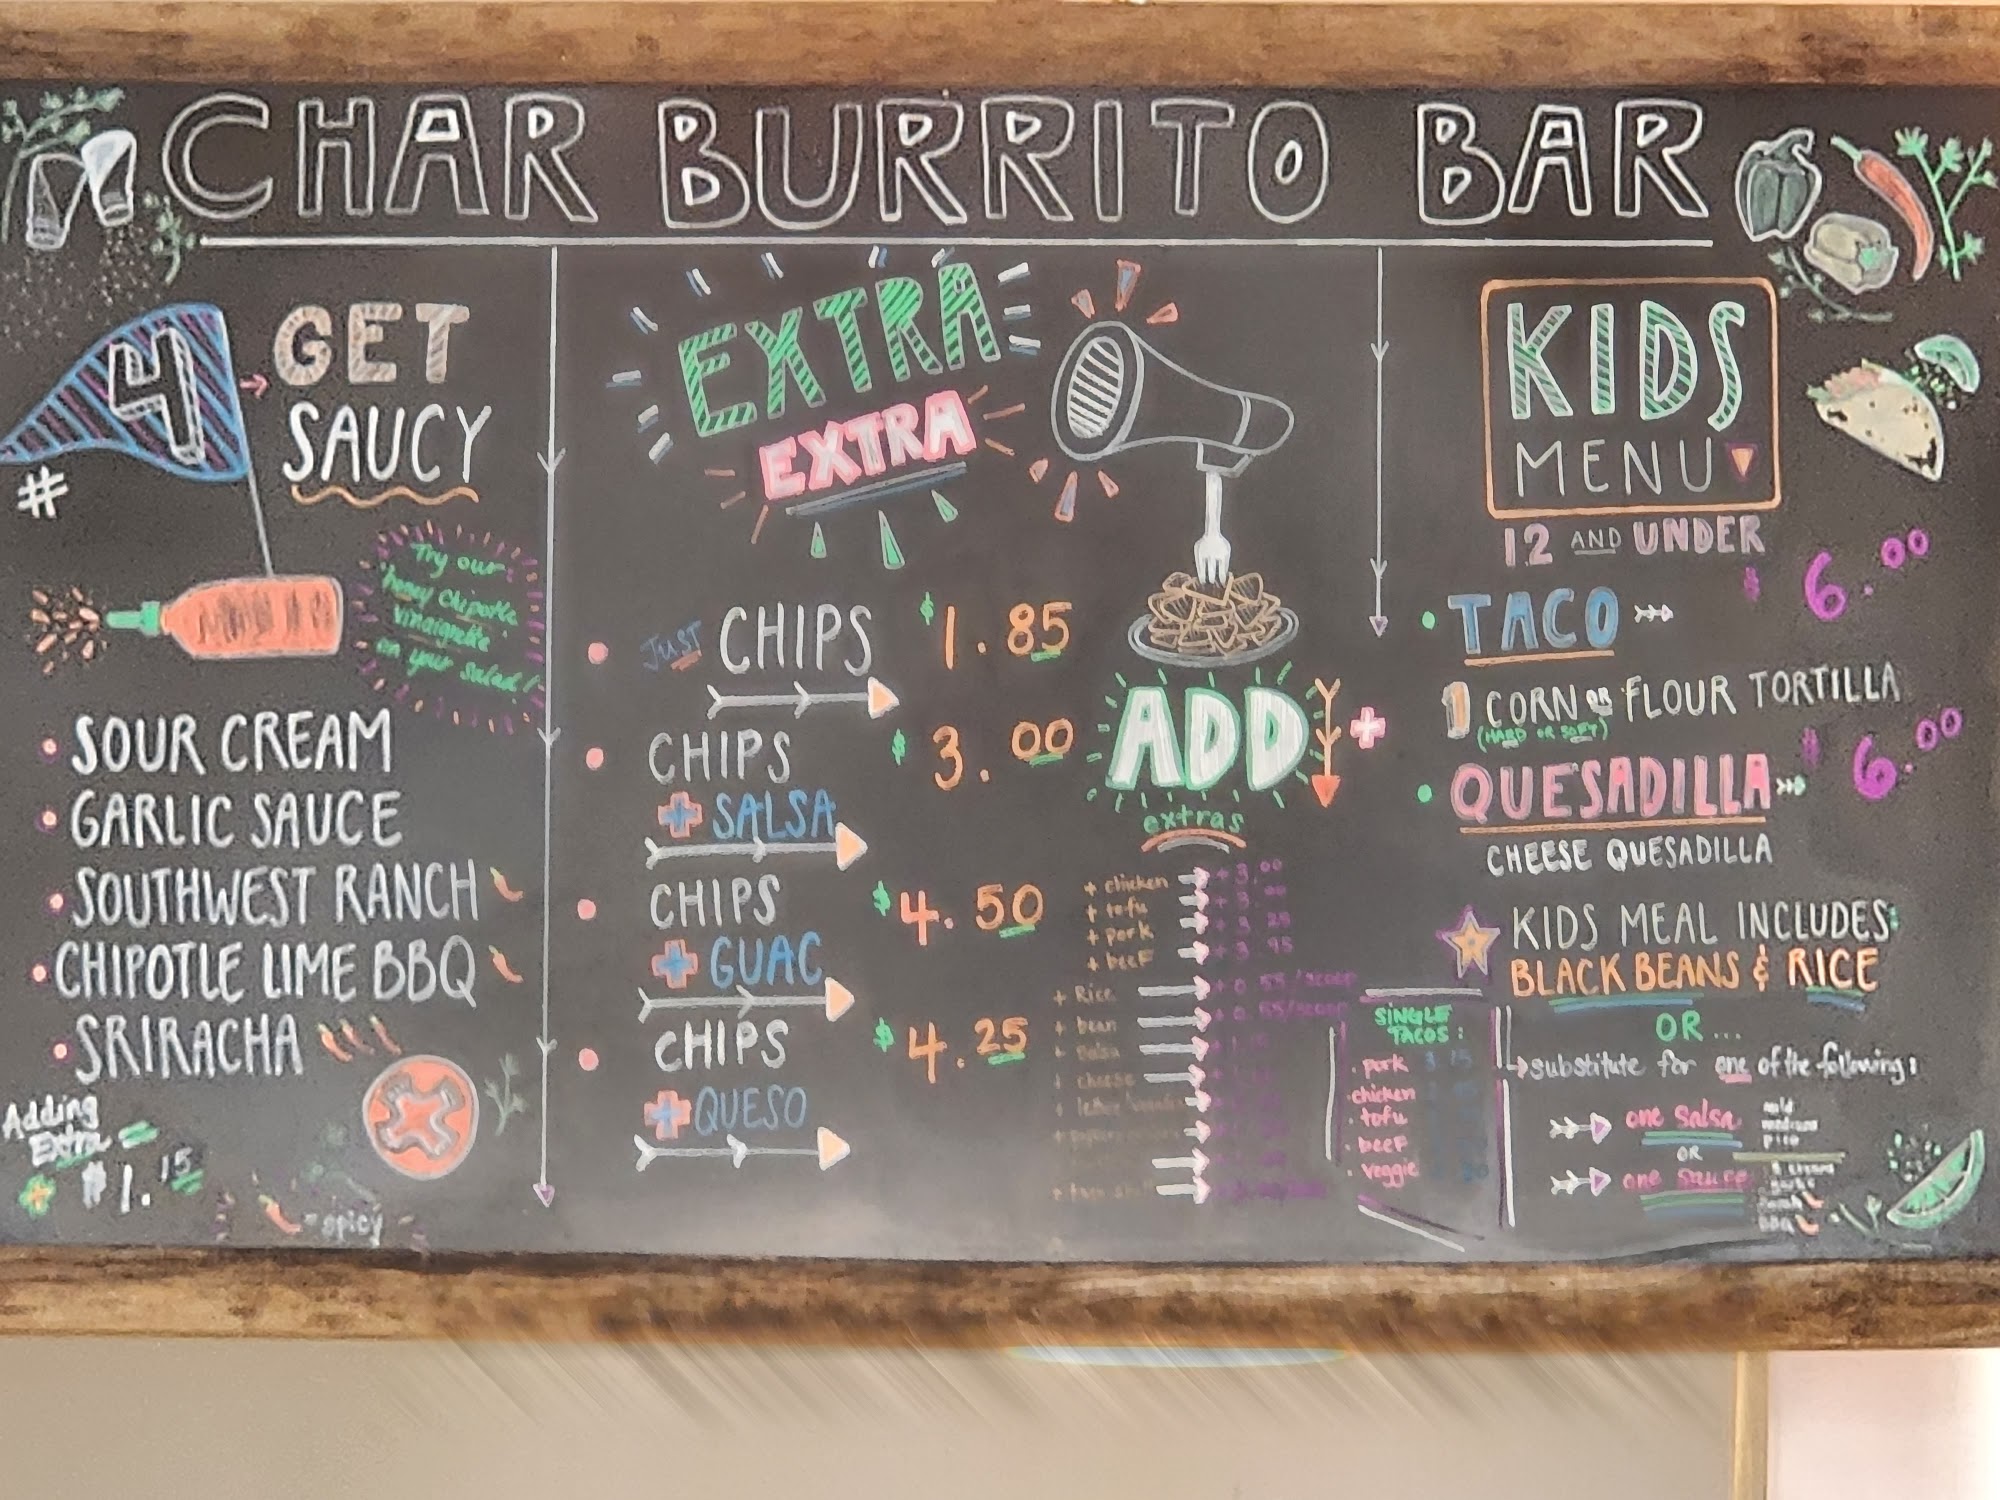 CHAR BURRITO BAR
4
#
GET
SAUCY
Try our
honey chipotle
vinaigrette
on your salad!
SOUR CREAM
GARLIC SAUCE
SOUTHWEST RANCH
CHIPOTLE LIME BBQ
SRIRACHA
Adding
Extra
+ $1.15
= spicy
EXTRA
EXTRA
JUST CHIPS $1.85
CHIPS $3.00
+ SALSA
CHIPS $4.50
+ GUAC
CHIPS $4.25
+ QUESO
ADD +
extras
+ chicken + 3.00
+ tofu + 3.00
+ pork + 3.25
+ beef + 3.95
+ Rice + 0.55/scoop
+ bean + 0.55/scoop
+ salsa
+ cheese
SINGLE
TACOS:
pork
chicken
tofu
beef
veggie
KIDS
MENU
12 AND UNDER
TACO $6.00
1 CORN OR FLOUR TORTILLA
(HARD OR SOFT)
QUESADILLA $6.00
CHEESE QUESADILLA
KIDS MEAL INCLUDES:
BLACK BEANS & RICE
OR...
substitute for one of the following:
one salsa
mild
medium
pico
OR
one sauce
BBQ